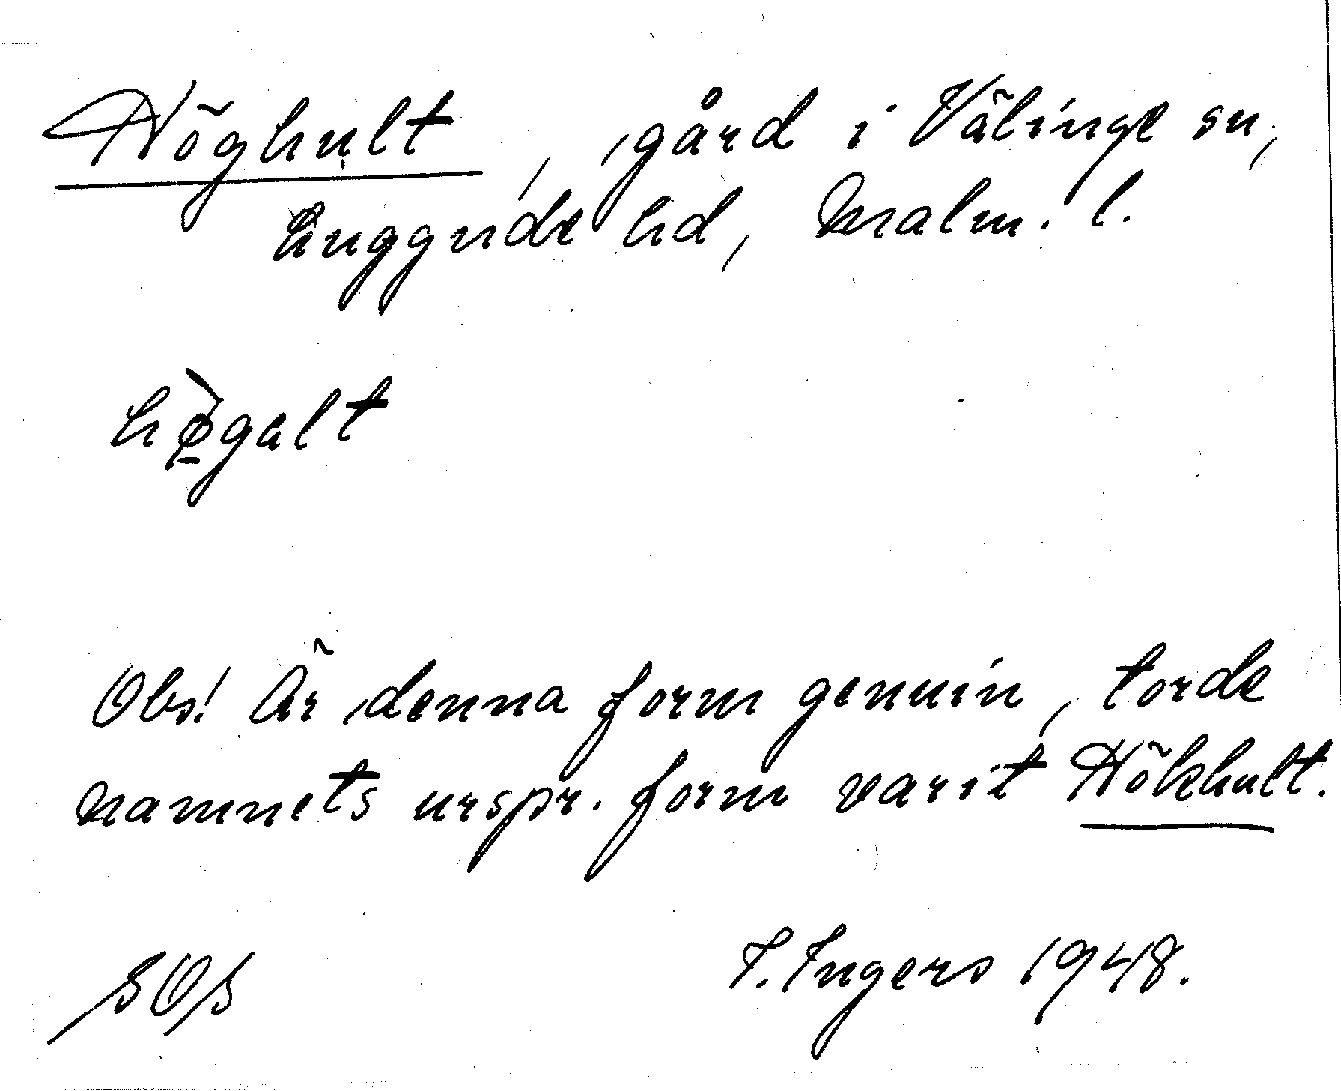 Höghult, gård i Välinge sn,
Luggude hd, Malm. l.
hø̀galt
Obs! Är denna form genuin, torde
namnets urspr. form varit Hökhult.
SOS I. Ingers 1948.